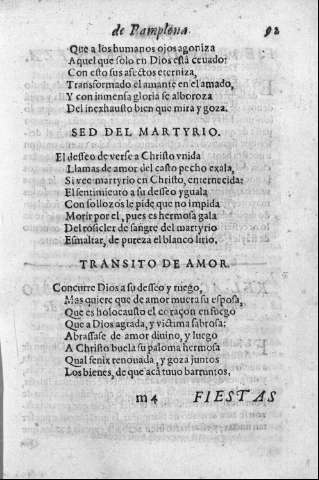 de Pamplona. 92
Que a los humanos ojos agoniza
Aquel que solo en Dios està ceuado:
Con esto sus afectos eterniza,
Transformado el amante en el amado,
Y con inmensa gloria se alboroza
Del inexhausto bien que mira y goza.
SED DEL MARTYRIO.
El desseo de verse a Christo vnida
Llamas de amor del casto pecho exala,
Si vee martyrio en Christo, enternecida
El sentimiento a su desseo yguala
Con sollozos le pide que no impida
Morir por el, pues es hermosa gala
Del rosicler de sangre del martyrio
Esmaltar, de pureza el blanco lirio.
TRANSITO DE AMOR.
Concurre Dios a su desseo y ruego,
Mas quiere que de amor muera su esposa,
Que es holocausto el coraçon en fuego
Que a Dios agrada, y victima sabrosa:
Abrassase de amor diuino, y luego
A Christo buela su paloma hermosa
Qual fenix renouada, y goza juntos
Los bienes, de que acà tuuo barruntos.
m4 FIESTAS